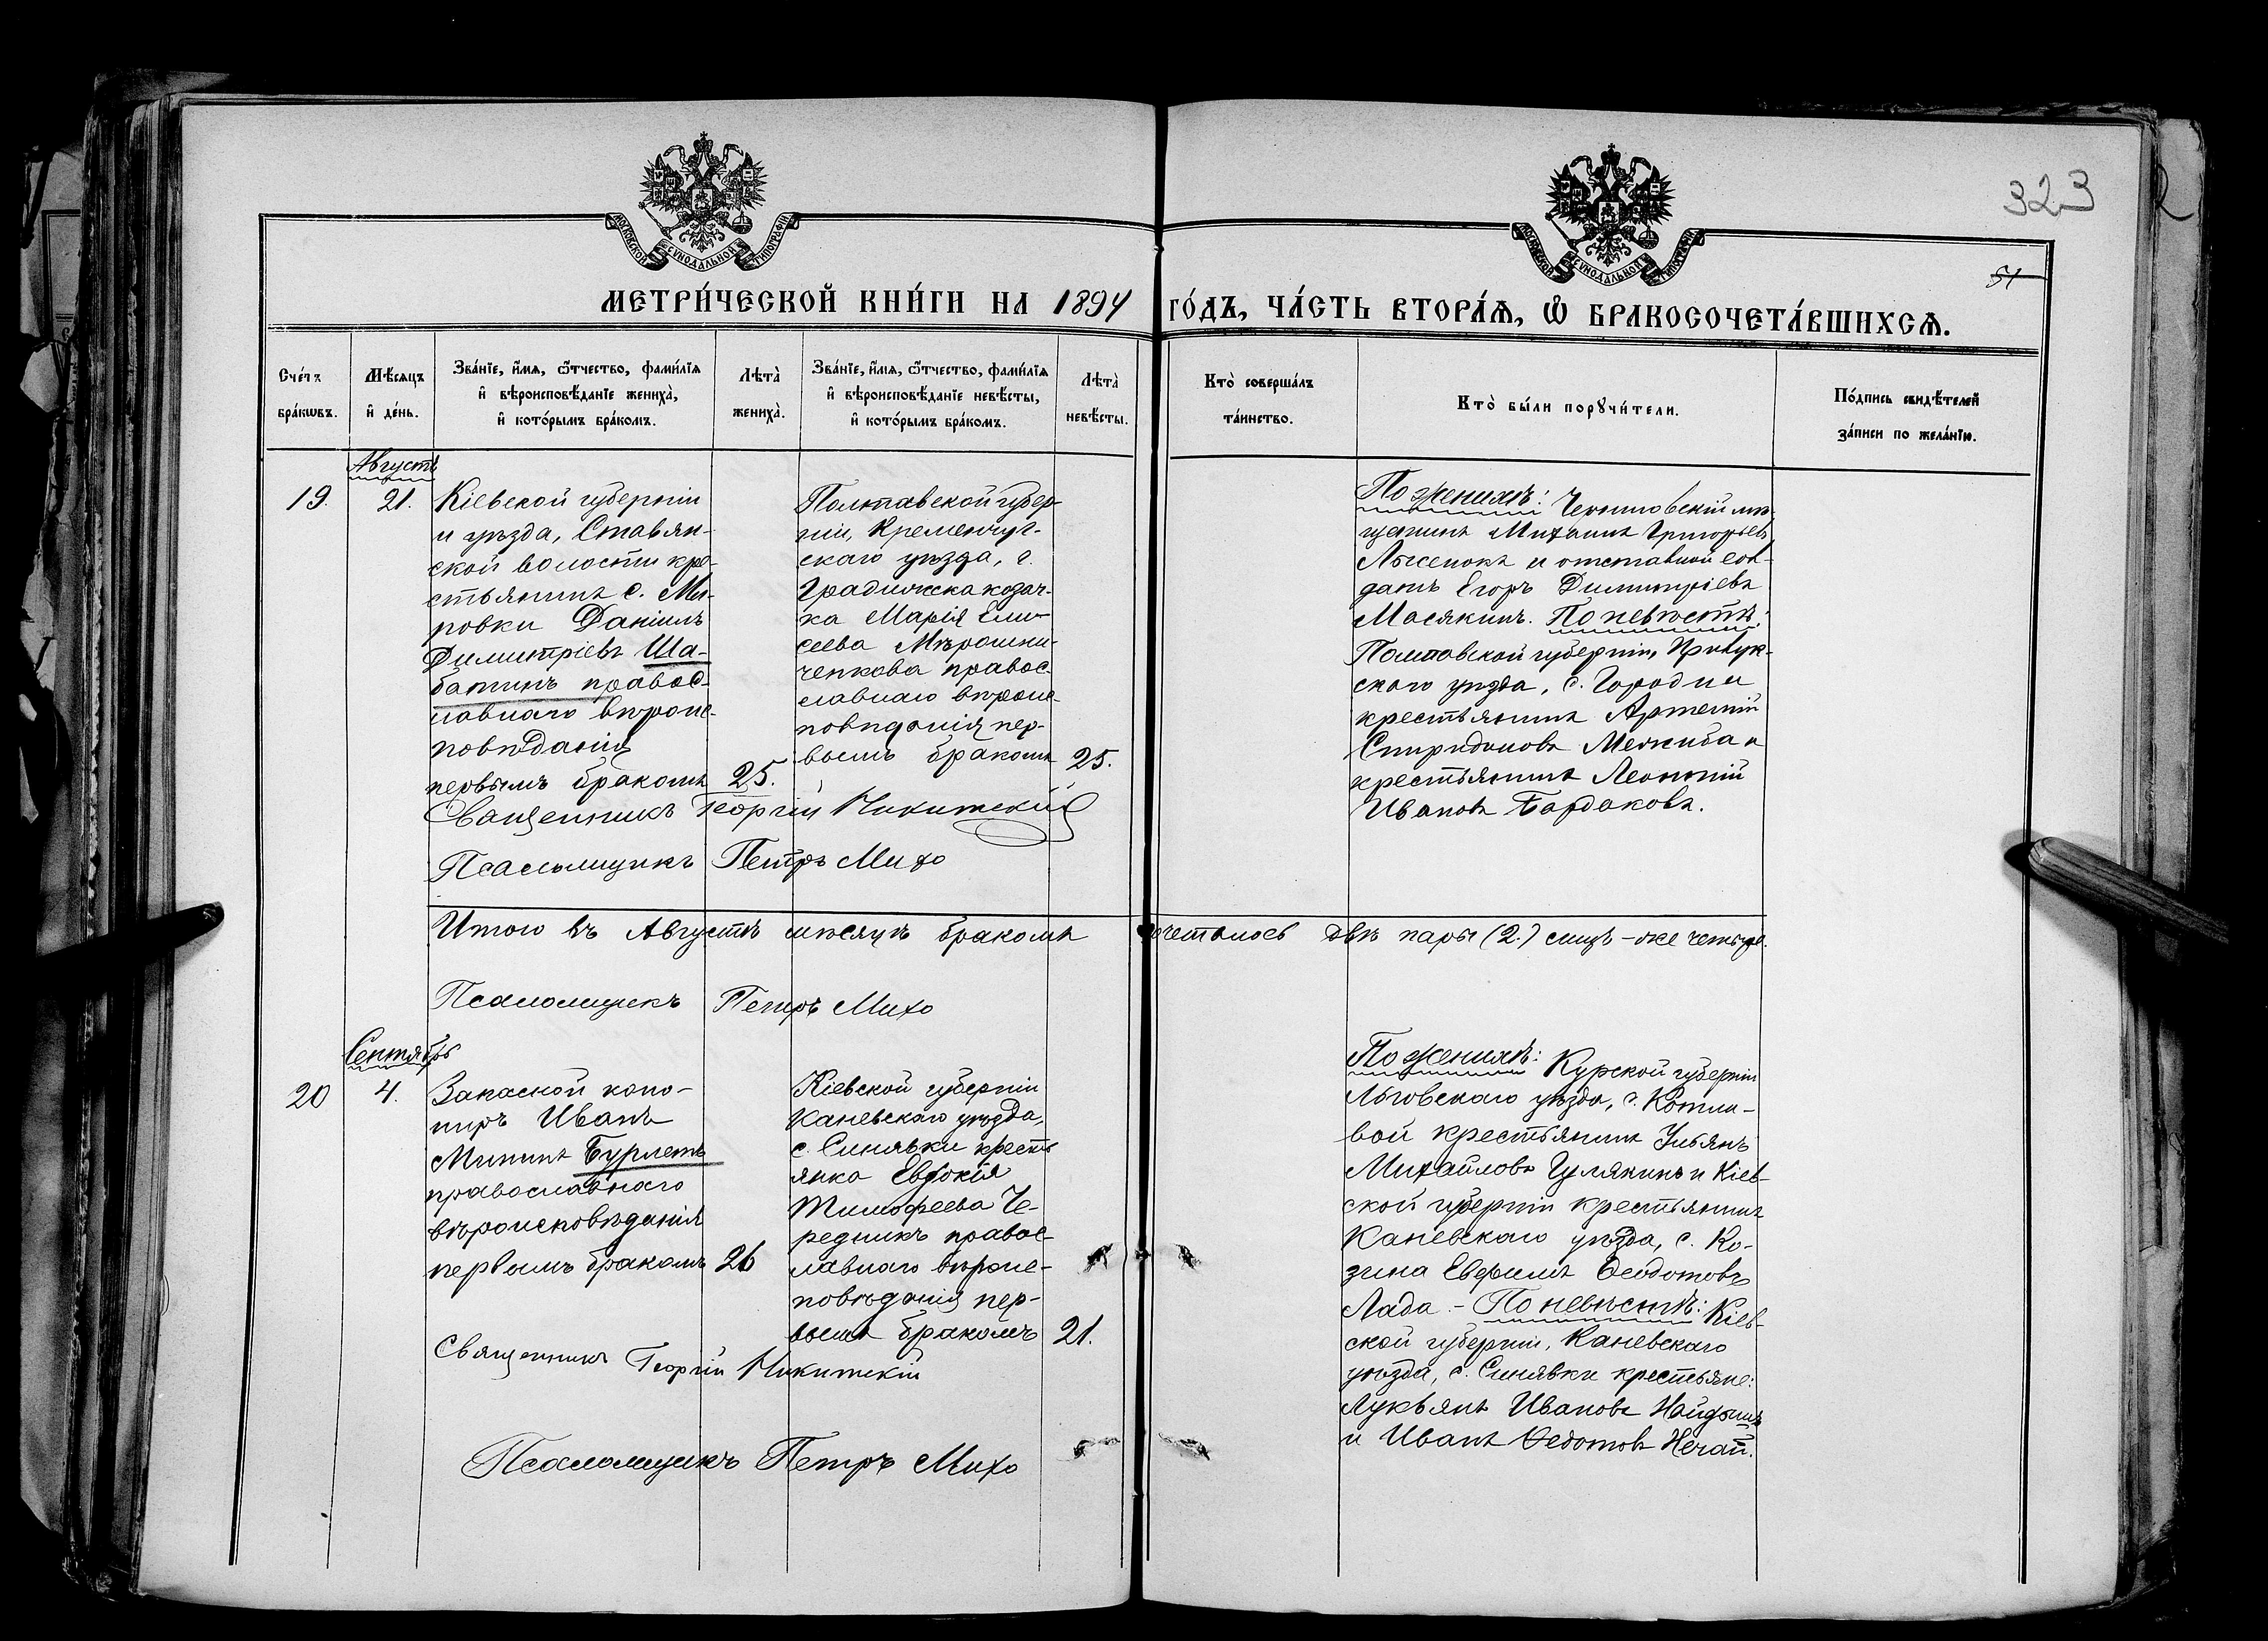 323
51
МОСКОВСКОЙ СѴНОДАЛЬНОЙ ТИПОГРАФІИ
МОСКОВСКОЙ СѴНОДАЛЬНОЙ ТИПОГРАФІИ
МЕТРИ́ЧЕСКОЙ КНИ́ГИ НА 1894 ГО́ДЪ, ЧА́СТЬ ВТОРА́Ѧ, Ѽ БРАКОСОЧЕТА́ВШИХСѦ.
Сче́тъ
бра́кѡвъ.
Мѣ́сяцъ
и҆ де́нь.
Зва́нїе, и҆́мѧ, ѻ҆́тчество, фами́лїѧ
и҆ вѣроисповѣ́данїе жениха̀,
и҆ кото́рымъ бра́комъ.
Лѣта̀
жениха̀.
Зва́нїе, и҆́мѧ, ѻ҆́тчество, фами́лїѧ
и҆ вѣроисповѣ́данїе невѣ́сты,
и҆ кото́рымъ бра́комъ.
Лѣта̀
невѣ́сты.
Кто̀ соверша́лъ
та́инство.
Кто̀ бы́ли порꙋчи́тели.
По́дпись свидѣ́телей
за́писи по жела́нїю.
Августъ
19.
21.
Кіевской губерніи
и уѣзда, Ставян-
ской волости кре-
стьянинъ с. Ми-
ровки Даніилъ
Димитріевъ Ша-
батинъ правос-
лавнаго вѣроис-
повѣданія
первымъ бракомъ
25.
Полтавской губер-
ніи, Кременчуг-
скаго уѣзда, г.
Градижска козач-
ка Марія Ели-
сеева Мѣрошни-
ченкова правос-
лавнаго вѣроис-
повѣданія пер-
вымъ бракомъ
25.
По женихѣ: Черниговскій мѣ-
щанинъ Михаилъ Григорьевъ
Лысенокъ и отставной сол-
датъ Егоръ Димитріевъ
Масякинъ. По невѣстѣ:
Полтавской губерніи, Прилук-
скаго уѣзда, с. Городни
крестьянинъ Артемій
Спиридоновъ и
крестьянинъ Леонтій
Ивановъ Бардаковъ.
Священникъ Георгій Никитскій
Псаломщикъ Петръ Михо
Итого въ Августѣ мѣсяцѣ бракомъ сочеталось двѣ пары (2.) лицъ-же четыре.
Псаломщикъ Петръ Михо
Сентябрь
20
4.
Запасной канo-
ниръ Иванъ
Мининъ Бурлетъ
православнаго
вѣроисповѣданія
первымъ бракомъ
26
Кіевской губерніи
Каневскаго уѣзда,
с. Синявки кресть
янка Евдокія
Тимофеева Че-
редникъ правос-
лавнаго вѣроис-
повѣданія пер-
вымъ бракомъ
21.
По женихѣ: Курской губерніи
Льговскаго уѣзда, с. Котле-
вой крестьянинъ Ульянъ
Михайловъ Гулякинъ и Кіев-
ской губерніи крестьянинъ
Каневскаго уѣзда, с. Ко-
зина Евфимъ Ѳеодотовъ
Лада. - По невѣстѣ: Кіев-
ской губерніи, Каневскаго
уѣзда, с. Синявки крестьяне:
Лукьянъ Ивановъ Найдынъ
и Иванъ Ѳедотовъ Нечай.
Священникъ Георгій Никитскій
Псаломщикъ Петръ Михо